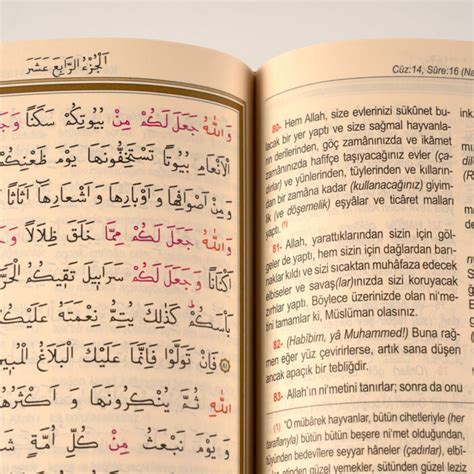 اَلْجُزْءُ الرَّابِعَ عَشَرَ
وَاللّٰهُ جَعَلَ لَكُمْ مِنْ بُيُوتِكُمْ سَكَنًا
الْاَنْعَامِ بُيُوتًا تَسْتَخِفُّونَهَا يَوْمَ ظَعْنِكُمْ
وَمِنْ اَصْوَافِهَا وَاَوْبَارِهَا وَاَشْعَارِهَا اَثَاثًا
وَاللّٰهُ جَعَلَ لَكُمْ مِمَّا خَلَقَ ظِلَالًا
اَكْنَانًا وَجَعَلَ لَكُمْ سَرَابِيلَ تَقِيكُمُ
بَأْسَكُمْ كَذٰلِكَ يُتِمُّ نِعْمَتَهُ عَلَيْكُمْ
فَاِنْ تَوَلَّوْا فَاِنَّمَا عَلَيْكَ الْبَلَاغُ
اللّٰهِ ثُمَّ يُنْكِرُونَهَا وَاَكْثَرُهُمُ
وَيَوْمَ نَبْعَثُ مِنْ كُلِّ اُمَّةٍ
Cüz:14, Sûre:16 (Na
80- Hem Allah, size evlerinizi sükûnet bu-
lacak bir yer yaptı ve size sağmal hayvanla-
rın derilerinden, göç zamânınızda ve ikâmet
zamânınızda hafifçe taşıyacağınız evler (ça-
dırlar) ve yünlerinden, tüylerinden ve kılların-
dan bir zamâna kadar (kullanacağınız) giyim-
lik (ve döşemelik) eşyâlar ve ticâret malları
yaptı. (1)
81- Allah, yarattıklarından sizin için göl-
geler de yaptı, hem sizin için dağlardan barı-
naklar kıldı ve sizi sıcaktan muhâfaza edecek
elbiseler ve savaş(lar)ınızda sizi koruyacak
zırhlar yaptı. Böylece üzerinizde olan ni'me-
tini tamamlar ki, Müslüman olasınız.
82- (Habîbim, yâ Muhammed!) Buna rağ-
men eğer yüz çevirirlerse, artık sana düşen
ancak apaçık bir tebliğdir.
83- Allah'ın ni'metini tanırlar; sonra da onu
(1) "O mübârek hayvanlar, bütün cihetleriyle (her
taraflarıyla) bütün bütün beşere ni'met olduğundan,
bulutların bedevîlere seyyar hâneler (çadırlar), elbi-